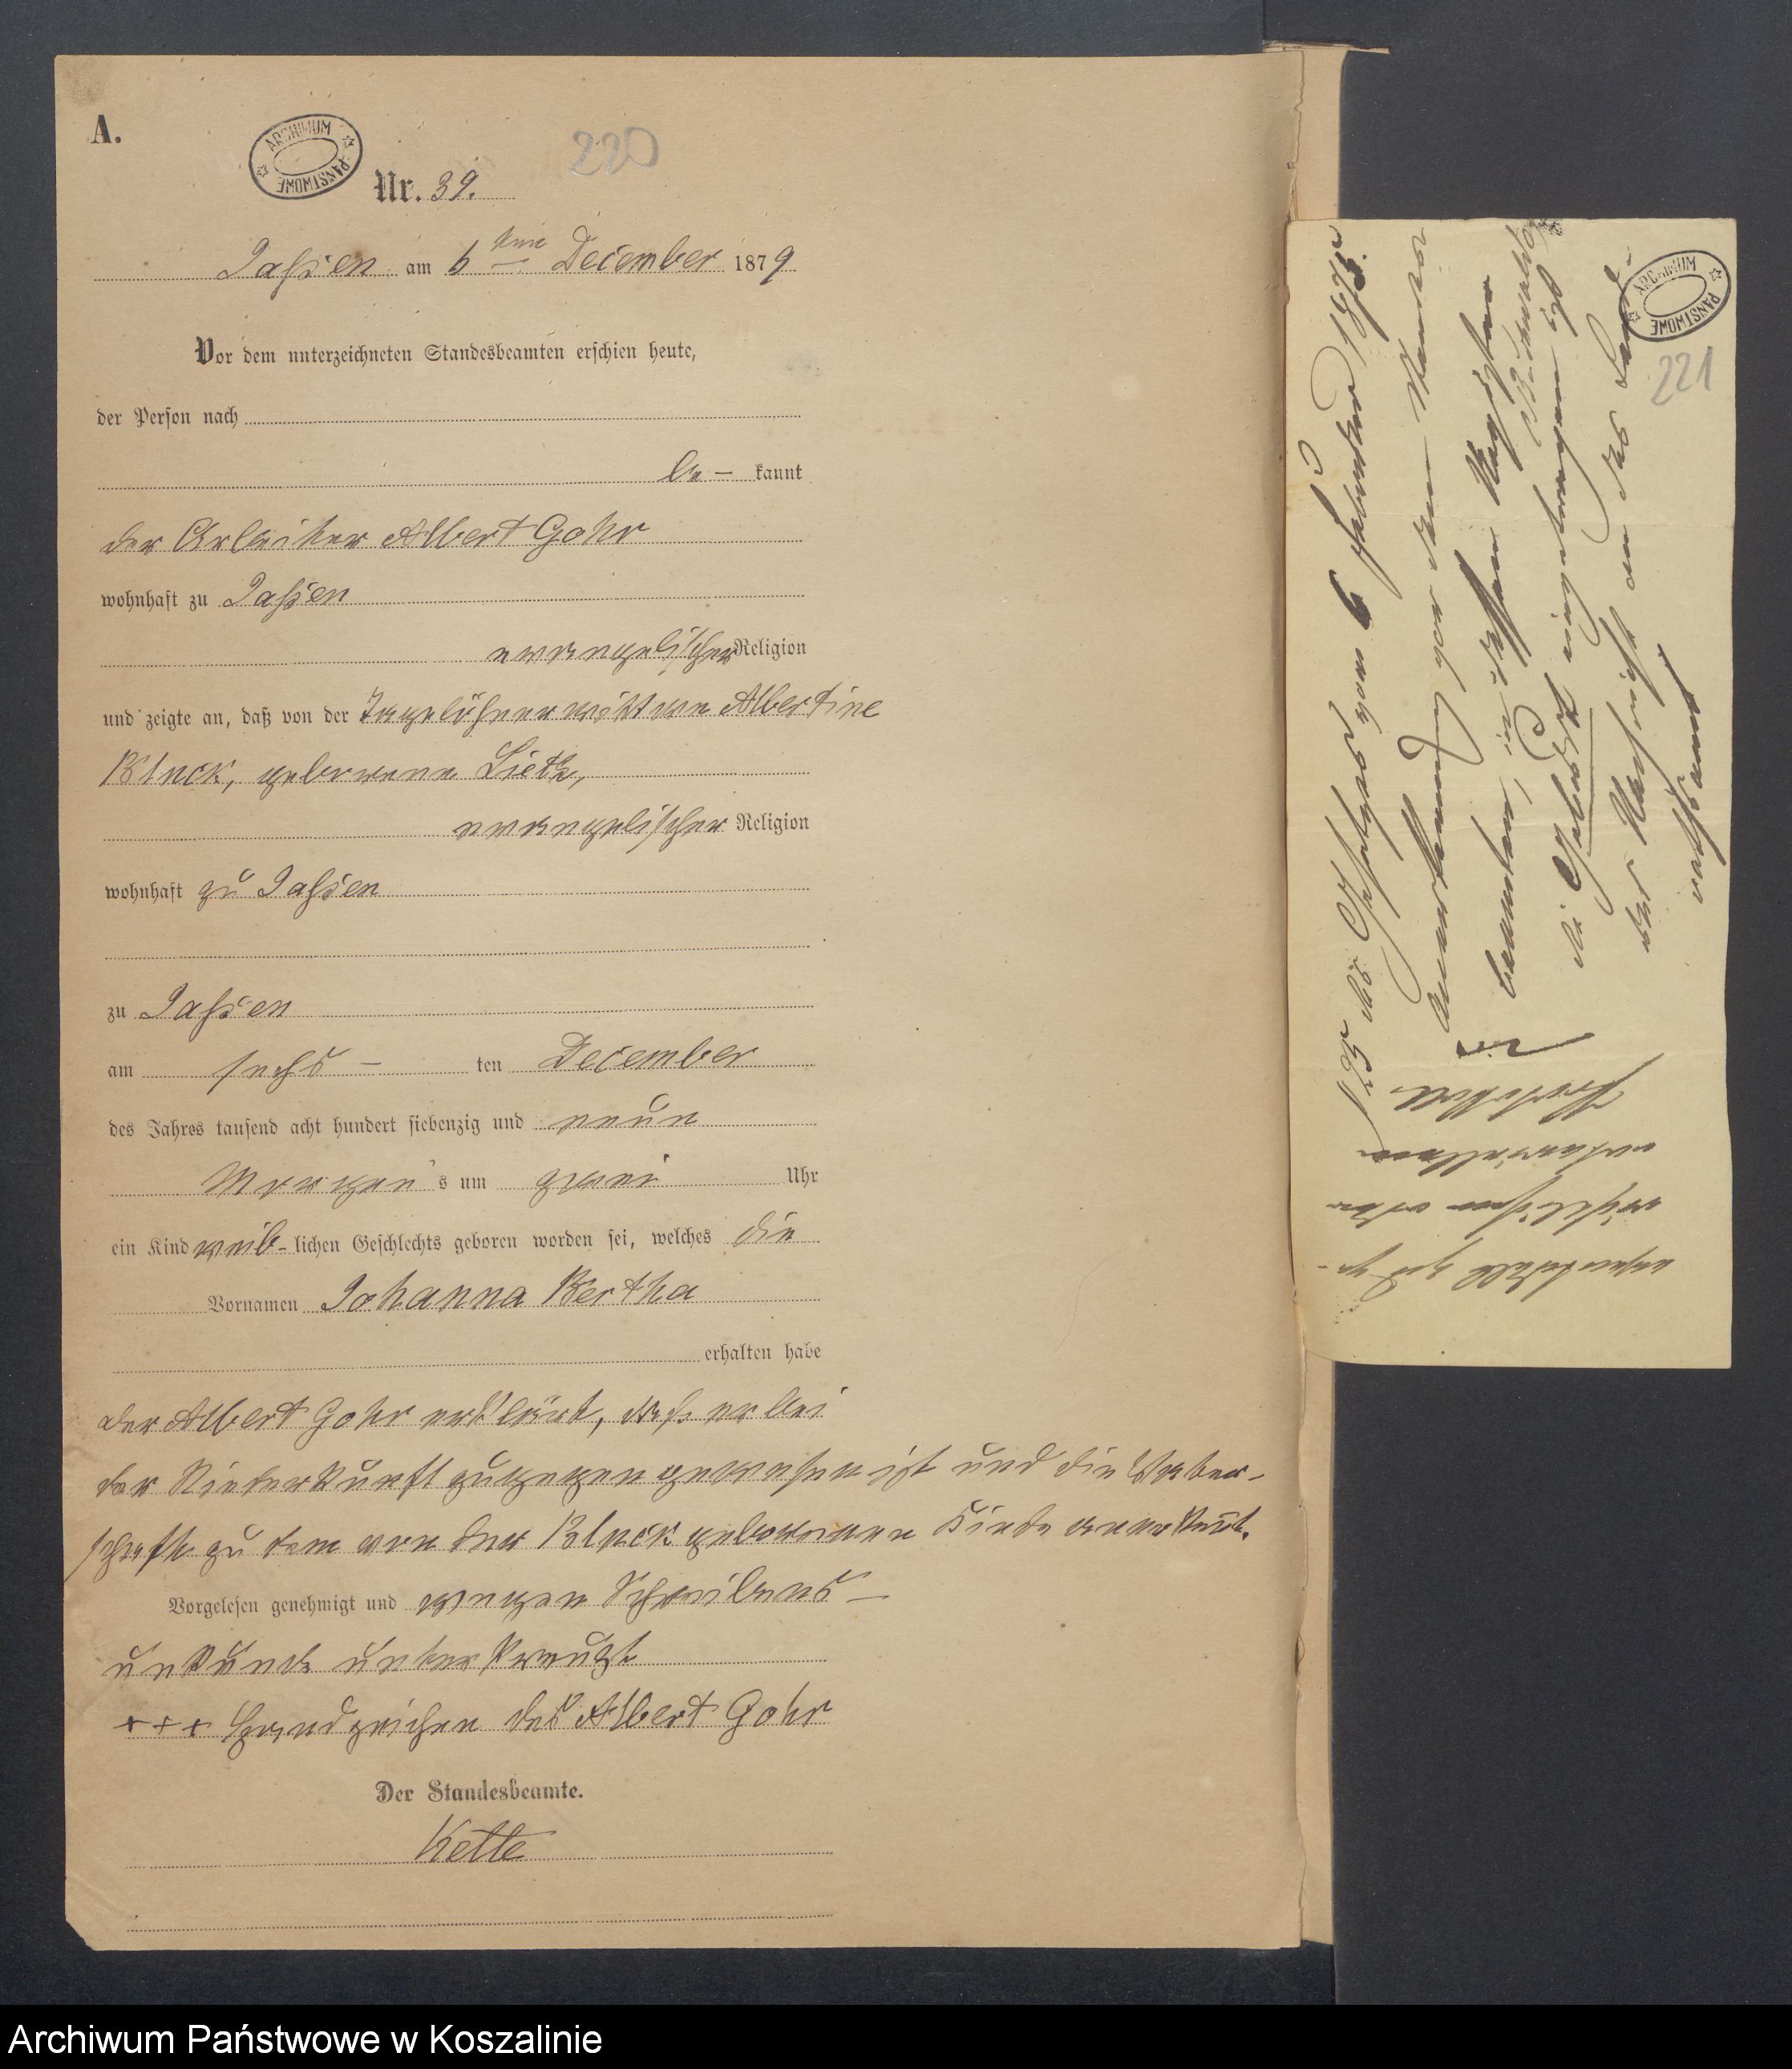 A.
ARCHIWUM PAŃSTWOWE
220
Nr. 39.
Jassen am 6ten December 1879
Vor dem unterzeichneten Standesbeamten erschien heute,
der Person nach
be- kannt
der Arbeiter Albert Gohr
wohnhaft zu Jassen
evangelischer Religion
und zeigte an, daß von der Tagelöhnerwittwe Albertine
Block, geborene Lietz,
evangelischer Religion
wohnhaft zu Jassen
zu Jassen
am sechs - ten December
des Jahres tausend acht hundert siebenzig und neun
Morgens um zwei Uhr
ein Kind weib-lichen Geschlechts geboren worden sei, welches die
Vornamen Johanna Bertha
erhalten habe
der Albert Gohr erklärt, daß er bei
der Niederkunft zugegen gewesen ist und die Vater-
schaft zu dem von der Block geborenen Kinde anerkennt.
Vorgelesen genehmigt und wegen Schreibens-
unkunde unterkreuzt
+++ Handzeichen des Albert Gohr
Der Standesbeamte.
Kette
ARCHIWUM PAŃSTWOWE
221
§25 des Gesetzes vom 6 Februar 1875
Anerkennung vor dem Standes
beamten, in dessen Register
die Geburt eingetragen ist
oder
gerichtlichen oder
notariellen
Protokoll
Archiwum Państwowe w Koszalinie